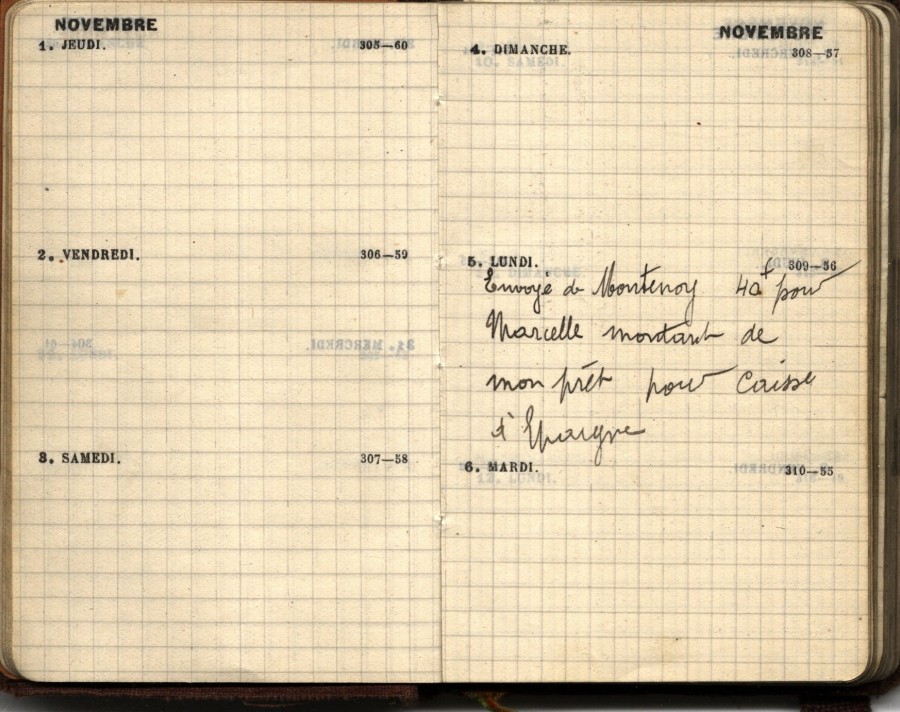 NOVEMBRE
1. JEUDI. 305—60
2. VENDREDI. 306—59
3. SAMEDI. 307—58
NOVEMBRE
4. DIMANCHE. 308—57
5. LUNDI. 309—56
Envoyé de Montenoy 40f pour
Marcelle montant de
mon prêt pour Caisse
d'Epargne
6. MARDI. 310—55